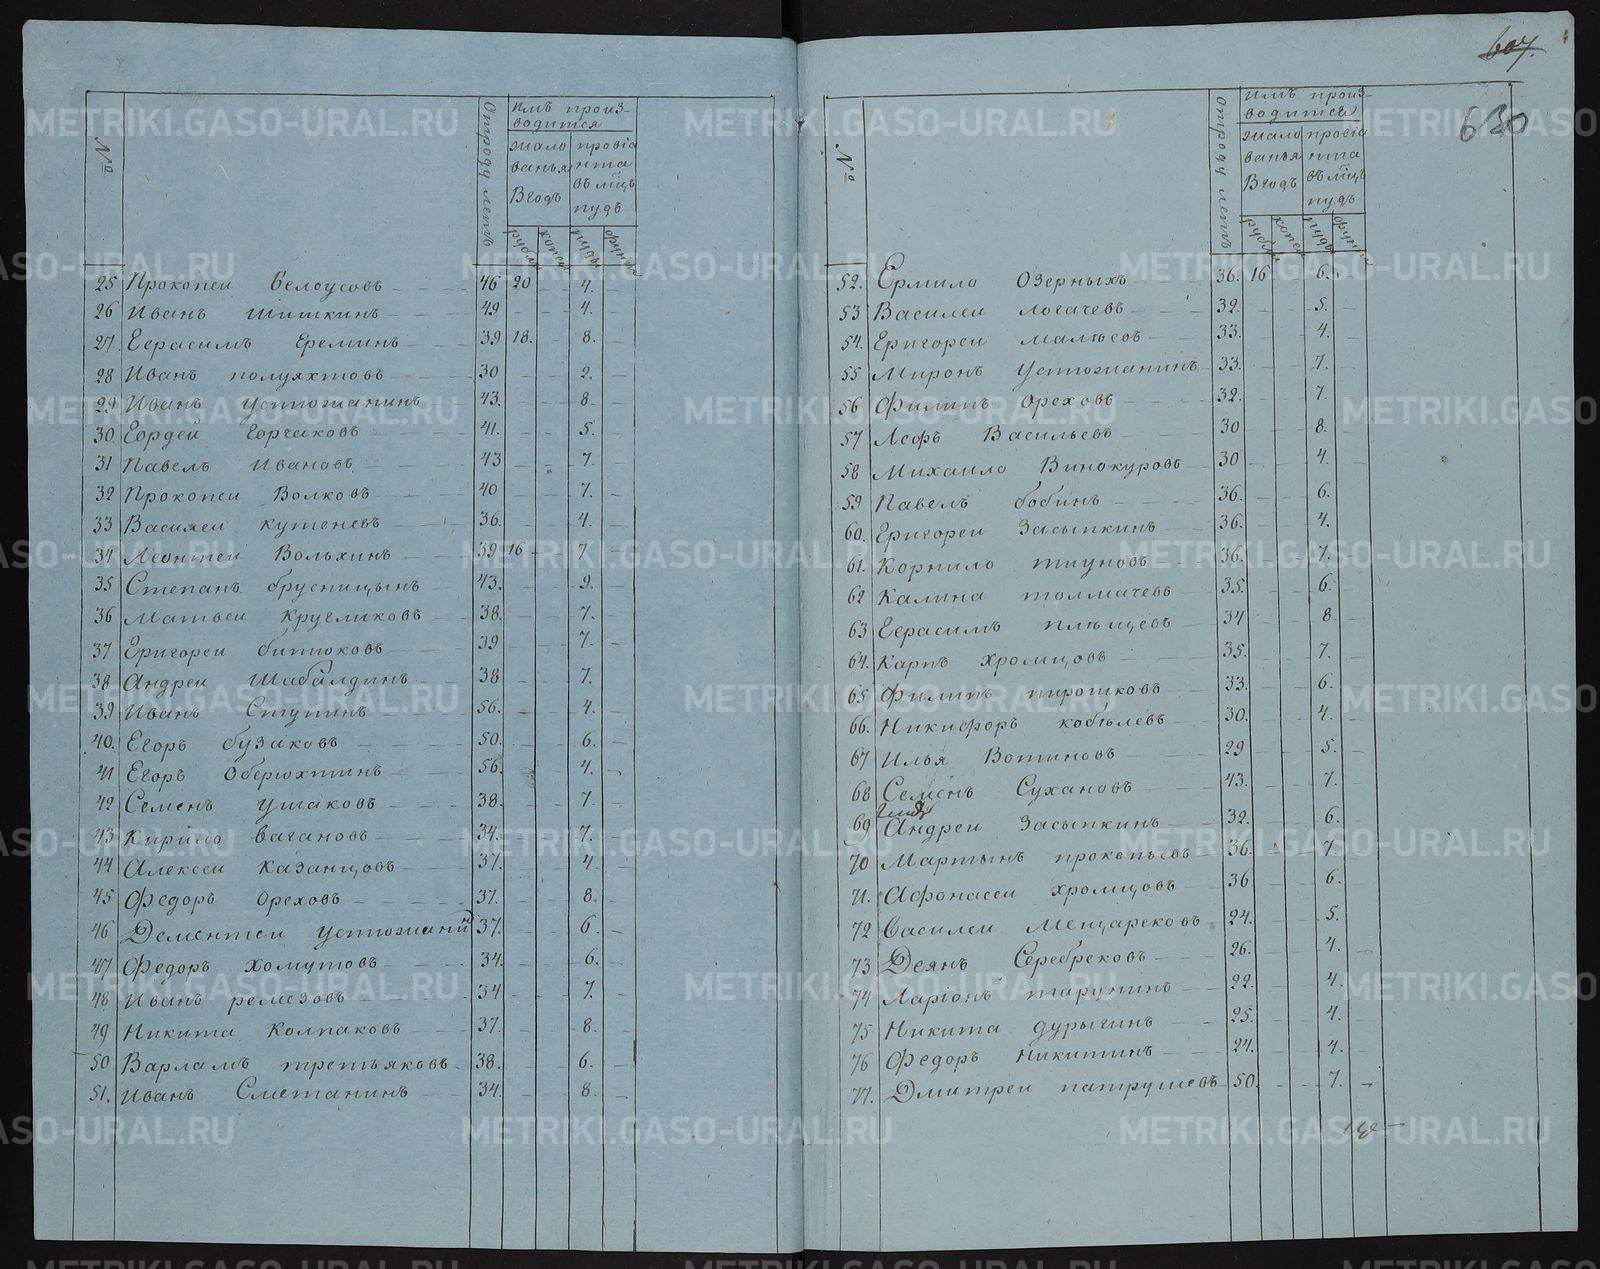 №
Отроду летъ
имъ произ-
водится
жало
ванья
Вгодъ
провіа
нта
въ мѣцъ
пудъ
рубли
копеи
пуды
фунты
25 Прокопеи белоусовъ 46 20 4.
26 Иванъ шишкинъ 49 4.
27. Герасимъ Ереминъ 39 18. 8.
28 Иванъ полуяхтовъ 30 2.
29 Иванъ устюжанинъ 43. 8
30 Гордеи Горчаковъ 41. 5.
31 Павелъ Ивановъ 43 7.
32 Прокопеи Волковъ 40 7.
33 Василеи кутеневъ 36. 4.
34 Леонтеи Вольхинъ 39 16 7
35 Степанъ брусницынъ 43. 9.
36 Матвеи Кругликовъ 38. 7.
37 Григореи битюковъ 39 7.
38 Андреи Шабалдинъ 38 7.
39 Иванъ Ступинъ 56. 4.
40. Егоръ бузаковъ 50. 6.
41 Егоръ Оберюхтинъ 56. 4.
42 Семенъ ушаковъ 38. 7.
43 Кирило вагановъ 34. 7.
44 Алексеи Казанцовъ 37. 4
45 Федоръ Ореховъ 37. 8.
46 Дементеи устюжани 37. 6.
47 Федоръ хомутовъ 34. 6.
48 Иванъ ремезовъ 34 7.
49 Никита Колпаковъ 37. 8.
50 Варламъ третьяковъ 38. 6.
51. Иванъ Сметанинъ 34. 8.
607.
630
№
Отроду летъ
имъ произ-
водится
жало
ванья
Вгодъ
провіа
нта
въ мѣцъ
пудъ
рубли
копеи
пуды
фунты
52. Ермило Озерныхъ 36. 16 6.
53 Василеи логачевъ 32. 5.
54. Григореи мальевъ 33. 4.
55 Миронъ устюжанинъ 33. 7.
56 Филипъ Ореховъ 32. 7.
57 Лефъ Васильевъ 30 8.
58 Михаило Винокуровъ 30 4.
59 Павелъ бобинъ 36. 6.
60. Григореи Засыпкинъ 36. 4.
61. Корнило тиуновъ 36. 7.
62 Калина толмачевъ 35. 6.
63 Герасимъ плющевъ 34 8
64. Карпъ хромцовъ 35. 7.
65 Филипъ пирошковъ 33. 6.
66. Никифоръ кобелевъ 30. 4.
67 Илья Вотиновъ 29 5.
68 Семенъ Сухановъ 43. 7.
69 Андреи Засыпкинъ 32. 6.
70 Мартынъ прокопьевъ 36. 7.
71. Афонасеи хромцовъ 36 6.
72 Василеи мещарековъ 24. 5.
73 Деянъ Серебрековъ 26. 4.
74 Ларіонъ тарунинъ 22. 4.
75 Никита дурыгинъ 25. 4.
76 Федоръ Никитинъ 24. 4.
77. Дмитреи патрушевъ 50. 7.
METRIKI.GASO-URAL.RU